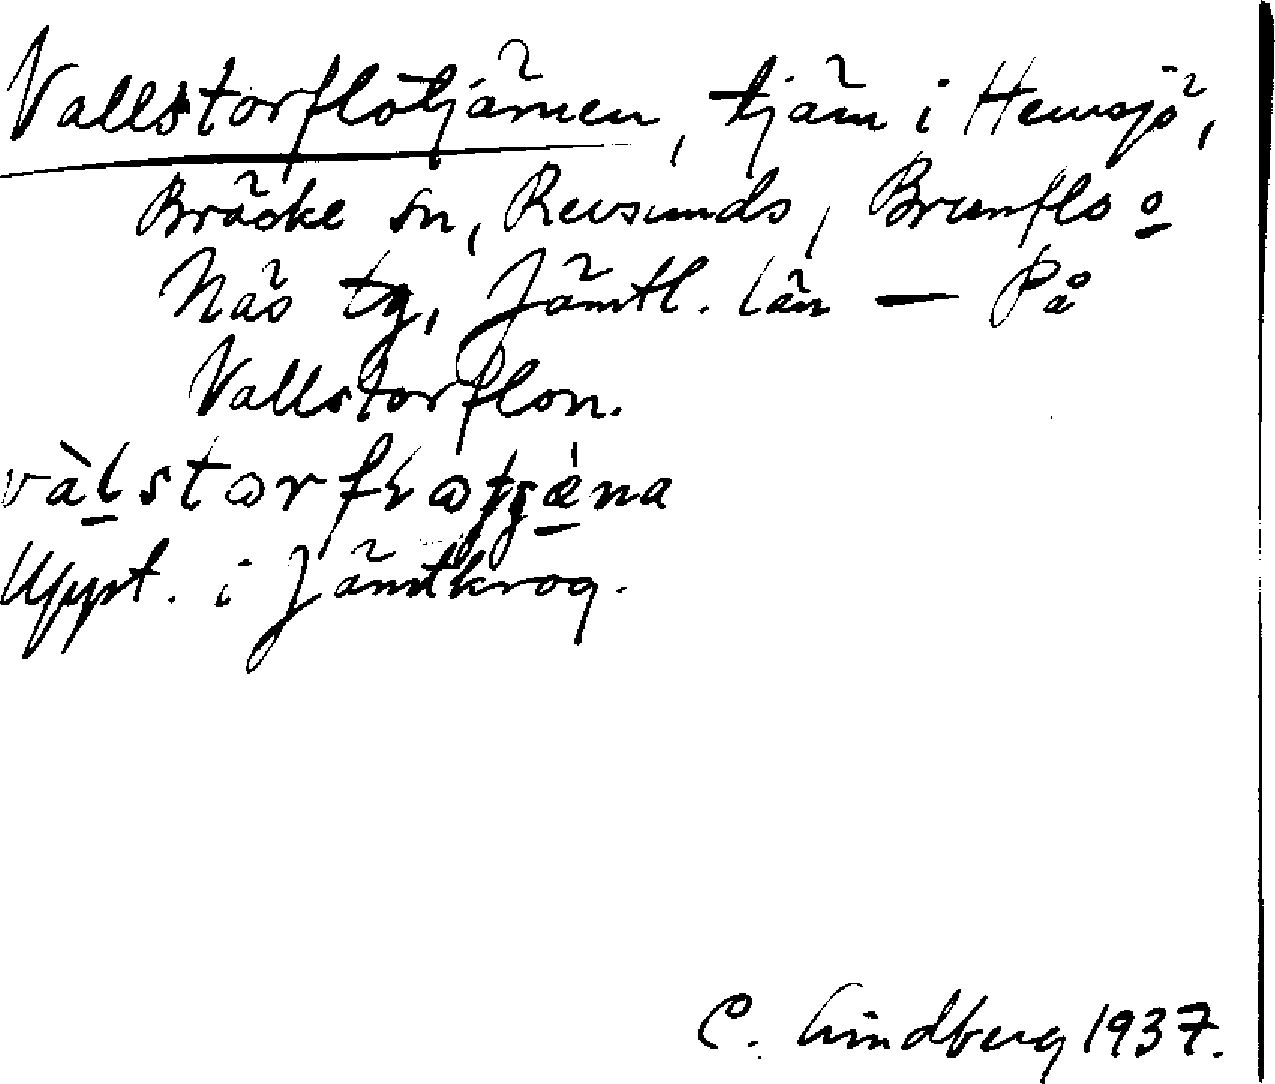 Vallstorflötjärnen, tjärn i Hemsjö,
Bräcke sn, Revsunds, Brunflo o
Näs tg, Jämtl. län — På
Vallstorflon.
Uppt. i Jämtkrog.
C. Lindberg 1937.